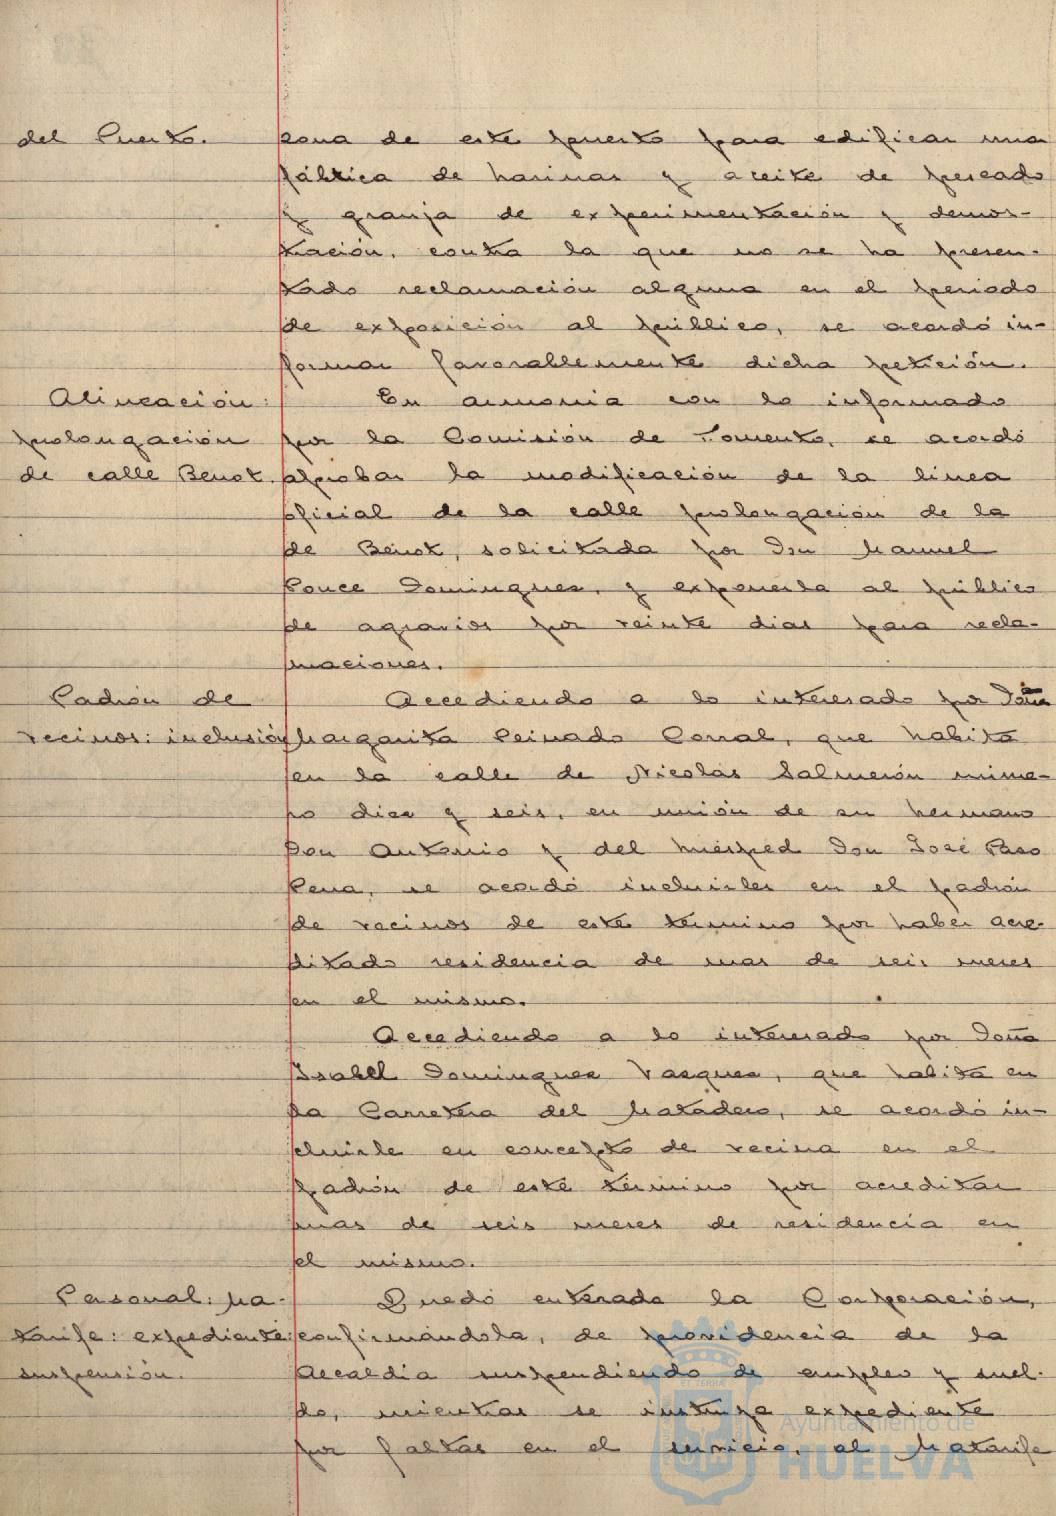 del Puerto.
zona de este puerto para edificar una
fábrica de harinas y aceite de pescado
y granja de experimentación y demos-
tración, contra la que no se ha presen-
tado reclamación alguna en el periodo
de exposición al público, se acordó in-
formar favorablemente dicha petición.
Alineación:
prolongación
de calle Benot.
En armonia con lo informado
por la Comisión de Fomento, se acordó
aprobar la modificación de la linea
oficial de la calle prolongación de la
de Benot, solicitada por Don Manuel
Ponce Dominguez, y exponerla al público
de agravios por veinte dias para recla-
maciones.
Padrón de
vecinos: inclusión
Accediendo a lo interesado por Doña
Margarita Peinado Corral, que habita
en la calle de Nicolás Salmerón núme-
ro diez y seis, en unión de su hermano
Don Antonio y del huésped Don José Pazo
Pena, se acordó incluirles en el padrón
de vecinos de este término por haber acre-
ditado residencia de mas de seis meses
en el mismo.
Accediendo a lo interesado por Doña
Isabel Dominguez Vazquez, que habita en
la Carretera del Matadero, se acordó in-
cluirle en concepto de vecina en el
padrón de este término por acreditar
mas de seis meses de residencia en
el mismo.
Personal: Ma-
tarife: expediente:
suspensión.
Quedó enterada la Corporación,
confirmándola, de providencia de la
Alcaldía suspendiendo de empleo y suel-
do, mientras se instruye expediente
por faltas en el servicio, al Matarife
Ayuntamiento de
HUELVA